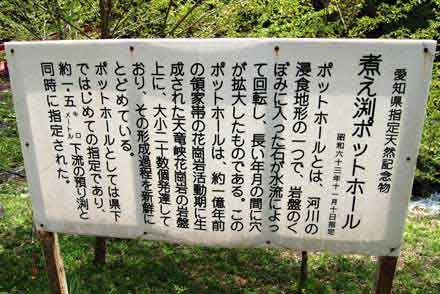 愛知県指定天然記念物
煮え渕ポットホール
昭和六十三年十一月十日指定
ポットホールとは、河川の
浸食地形の一つで、岩盤のく
ぼみに入った石が水流によっ
て回転し、長い年月の間に穴
が拡大したものである。この
ポットホールは、約一億年前
の領家帯の花崗岩活動期に生
成された天竜峡花崗岩の岩盤
上に、大小二十数個発達して
おり、その形成過程を新鮮に
とどめている。
ポットホールとしては県下
ではじめての指定であり、
約一・五キロメートル下流の預り渕と
同時に指定された。